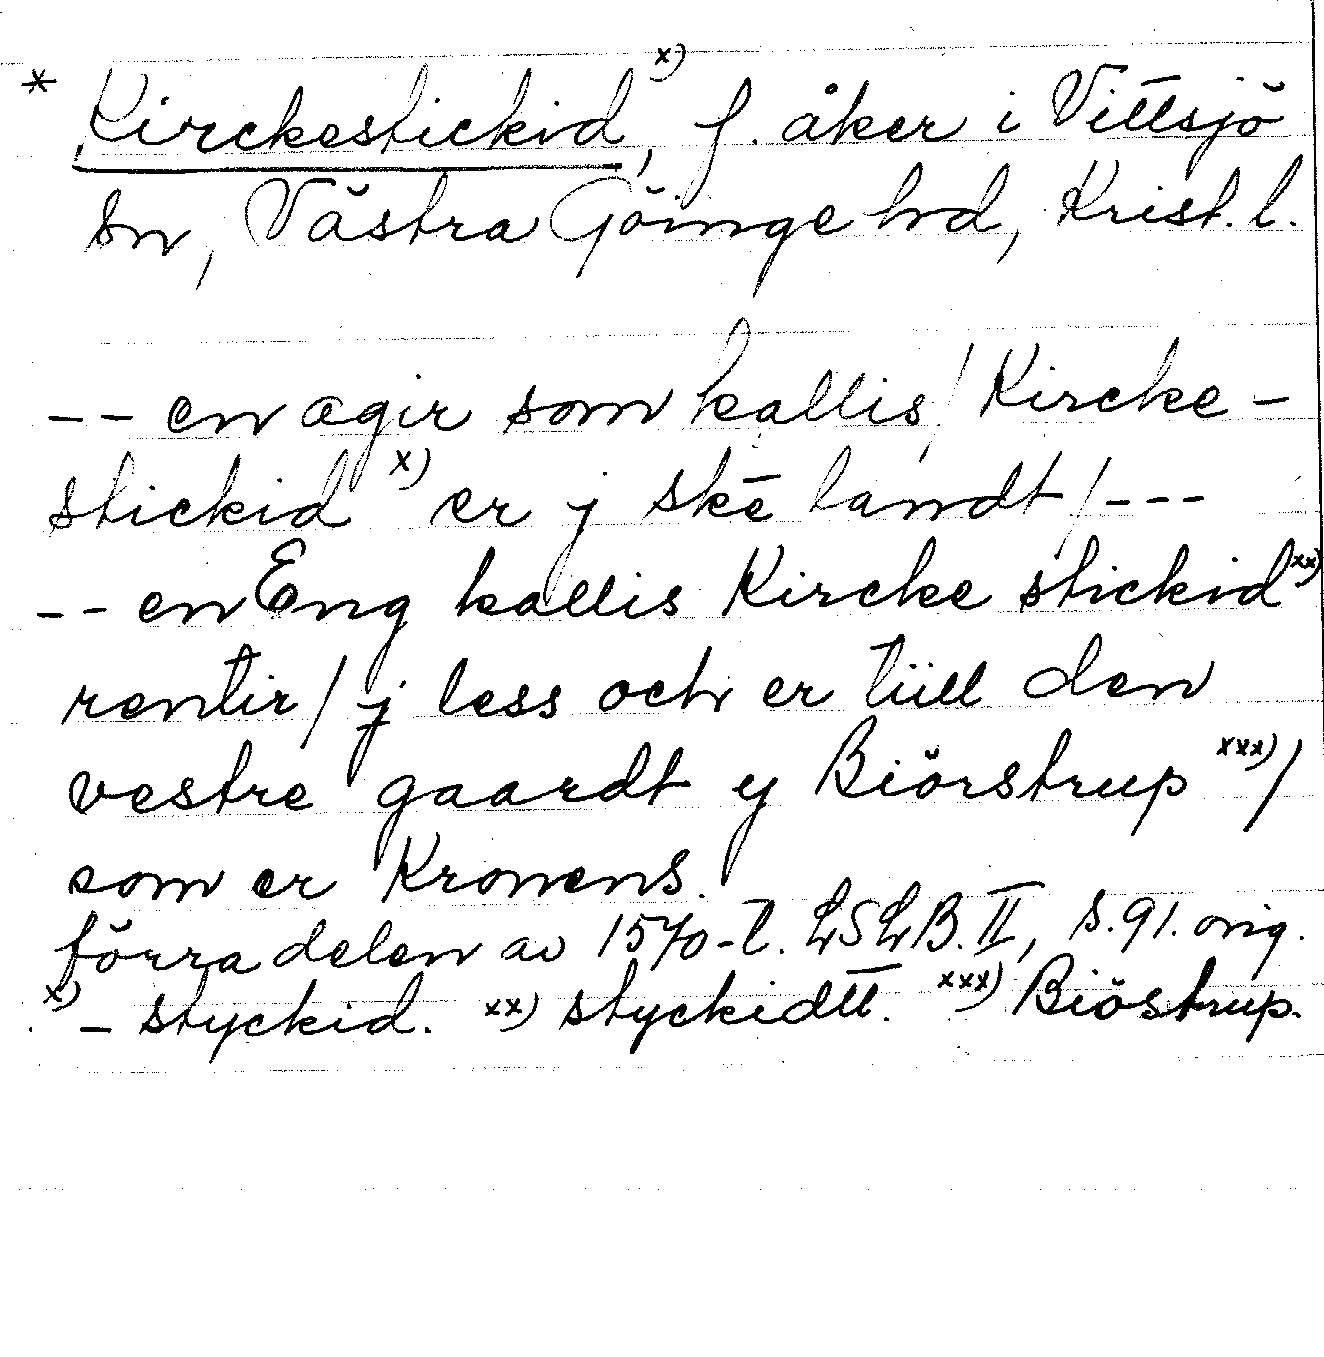 * Kirckestickid x), f. åker i Vittsjö
sn, Västra Göinge hd, Krist. l.
-- en agir som kallis / Kircke-
stickid x) er j skē landt / ---
-- en Eng kallis Kircke stickid xx)
rentir / j less och er tiill den
vestre gaardt y Biörstrup xxx) /
som er Kronens.
förra delen av 1570-t. LSLB. II, s. 91. orig.
x) - styckid. xx) styckidtt. xxx) Biöstrup.